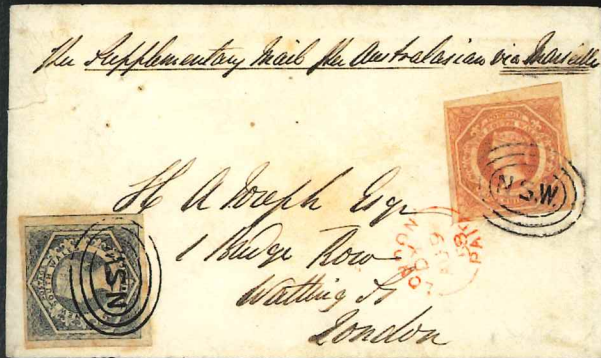 Per Supplementary Mail per Australasian via Marseilles
H A Joseph Esqr
1 Budge Row
Watling St
London
N.S.W.
N.S.W.
LONDON
AU 9
58
PAID